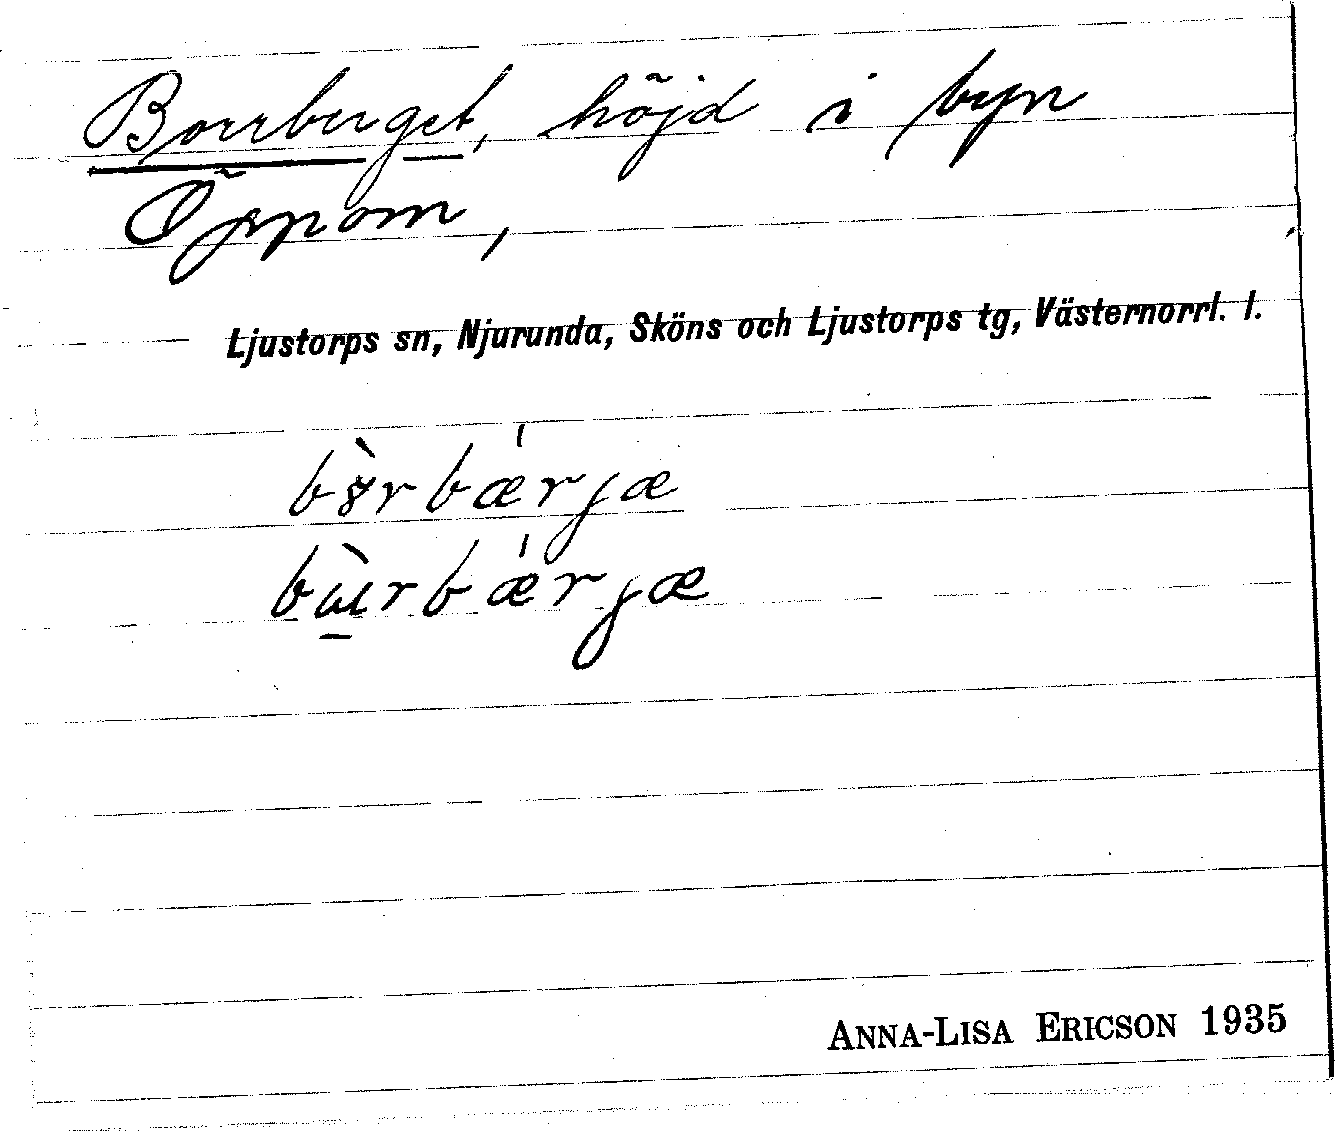 Borrberget, höjd i byn
Öppom,
Ljustorps sn, Njurunda, Sköns och Ljustorps tg, Västernorrl. l.
ANNA-LISA ERICSON 1935